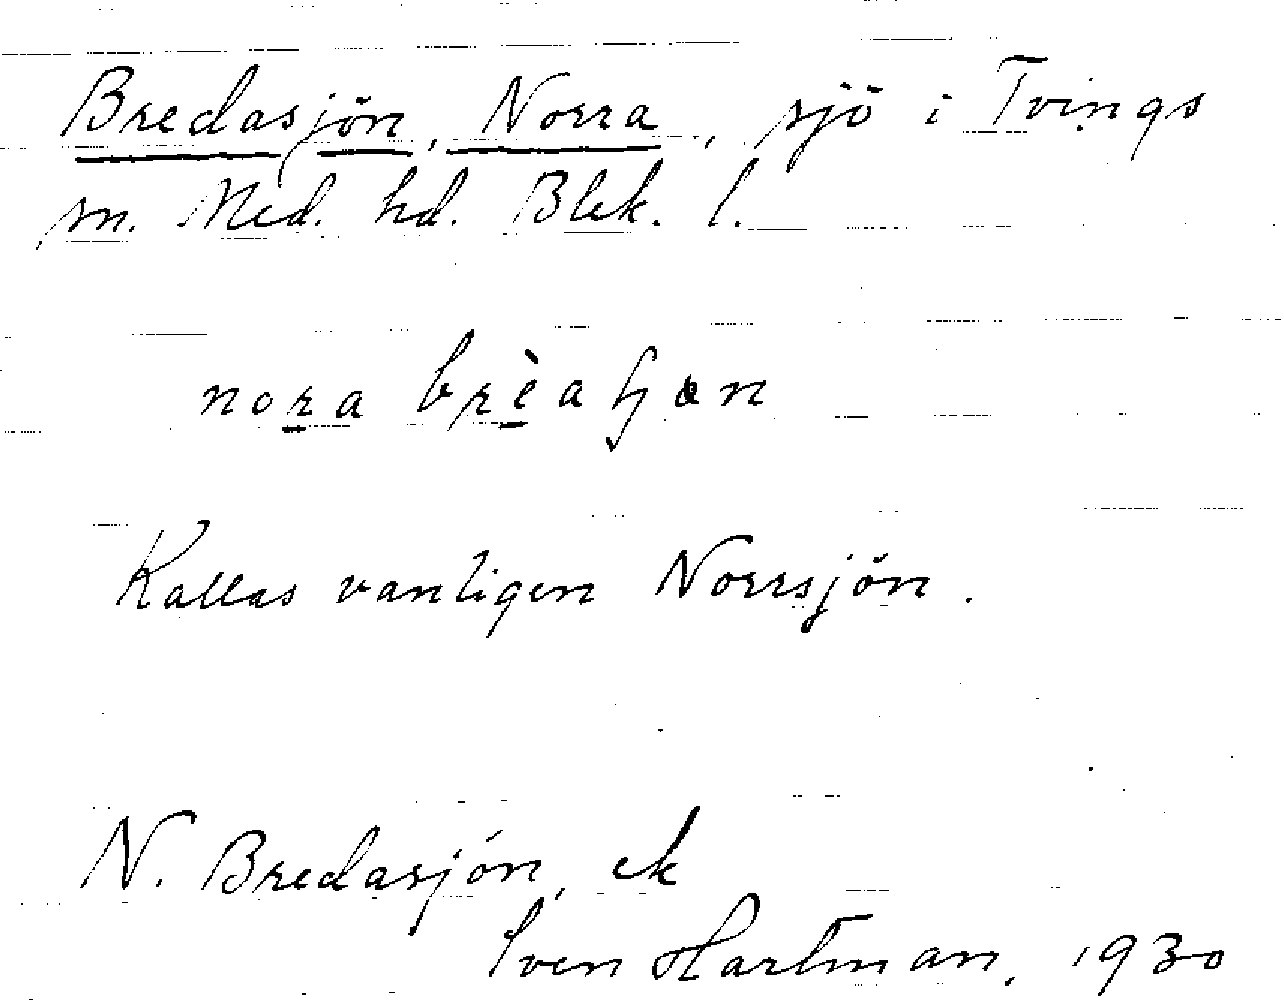 Bredasjön, Norra, sjö i Tvings
sn. Med. hd. Blek. l.
nora brèaɧæn
Kallas vanligen Norrsjön.
N. Bredasjön, ek
Sven Hartman, 1930